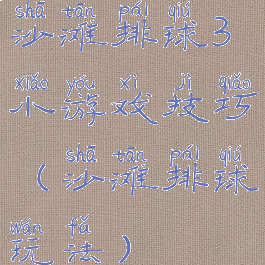 shā tān pái qiú
沙滩排球3
xiǎo yóu xì jì qiǎo
小游戏技巧
shā tān pái qiú
（沙滩排球
wán fǎ
玩法）